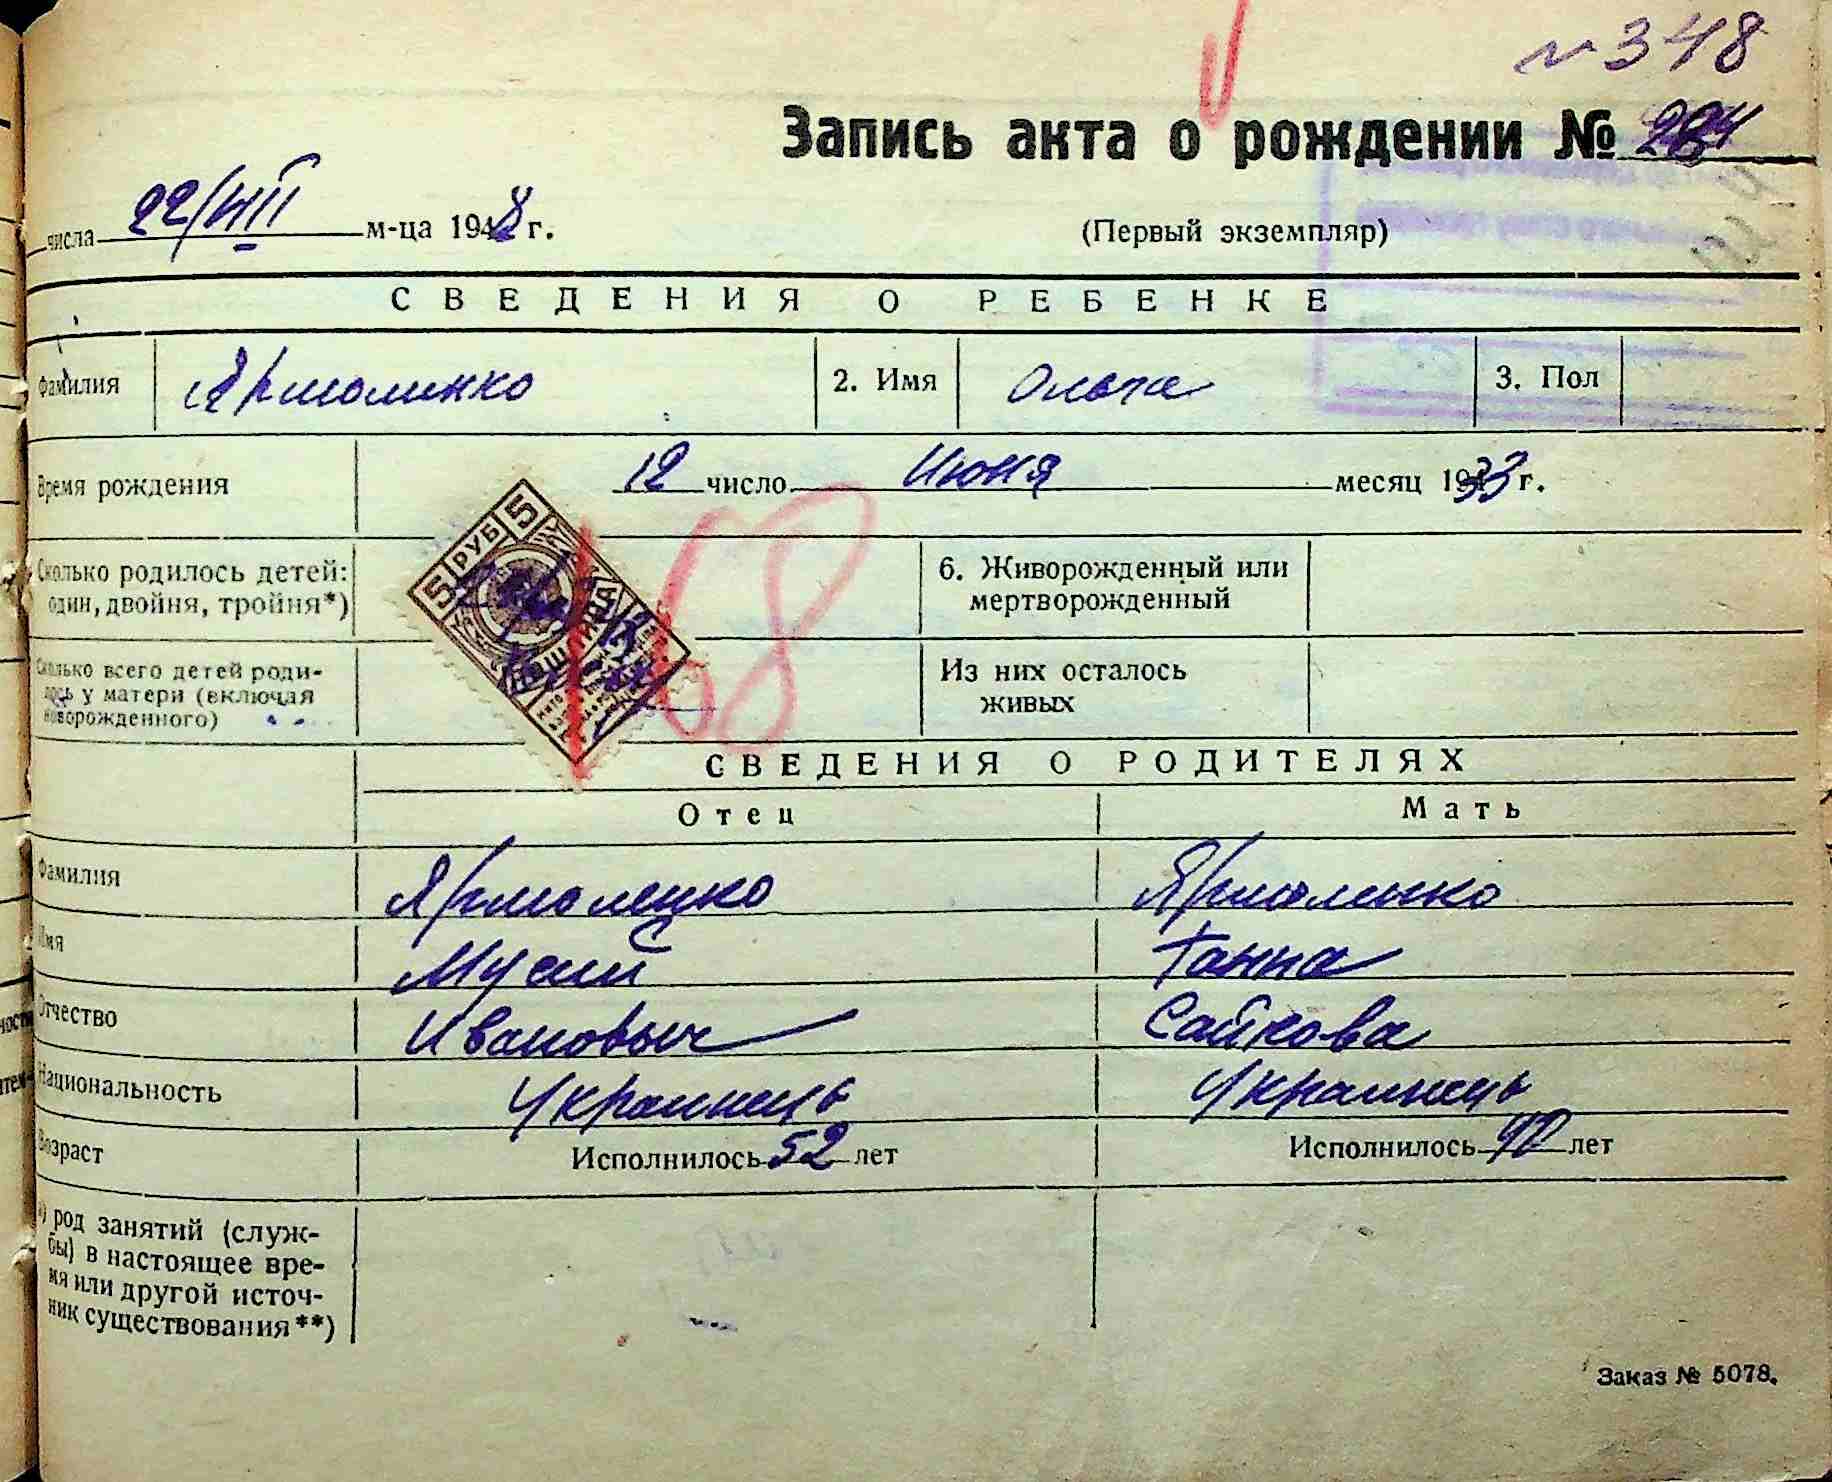 № 348
Запись акта о рождении № 284
числа 22/VIII м-ца 1948 г. (Первый экземпляр)
СВЕДЕНИЯ О РЕБЕНКЕ
Фамилия Ярмоленко 2. Имя Ольга 3. Пол
Время рождения 12 число Июня месяц 1933 г.
Сколько родилось детей: один, двойня, тройня*) 6. Живорожденный или мертворожденный
5 РУБ 5
68
Сколько всего детей родилось у матери (включая новорожденного) Из них осталось живых
СВЕДЕНИЯ О РОДИТЕЛЯХ
Отец Мать
Фамилия Ярмоленко Ярмоленко
Имя Мусий Ганна
Отчество Ивановыч Сайкова
Национальность Украинець Украинець
Возраст Исполнилось 52 лет Исполнилось 42 лет
а) род занятий (службы) в настоящее время или другой источник существования**)
Заказ № 5078.